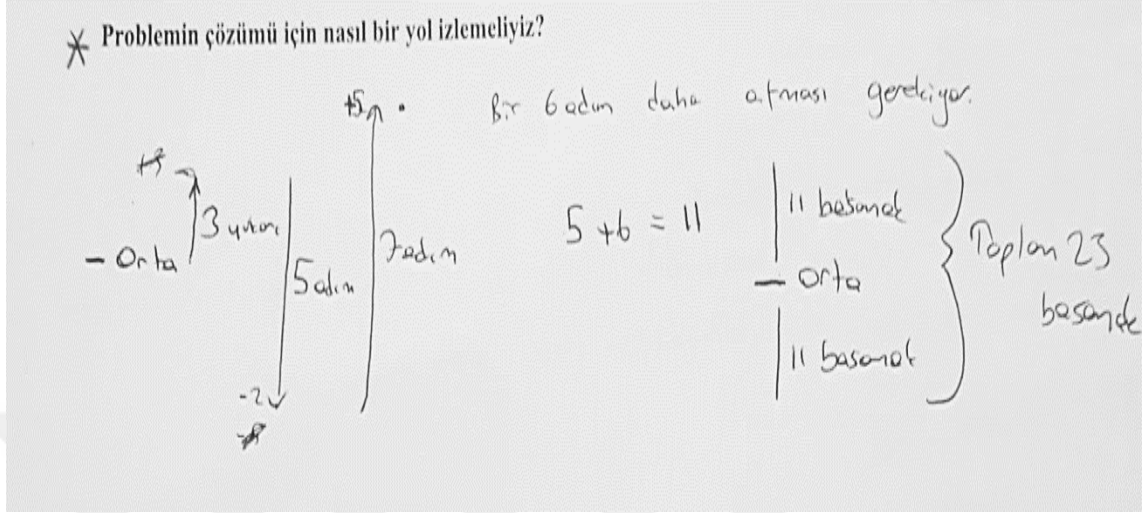 * Problemin çözümü için nasıl bir yol izlemeliyiz?
+5 Bir 6 adım daha atması gerekiyor.
3 yukarı
- Orta
5 adım
7 adım
-2
5 + 6 = 11
11 basamak
- Orta
11 basamak
Toplam 23
basamak